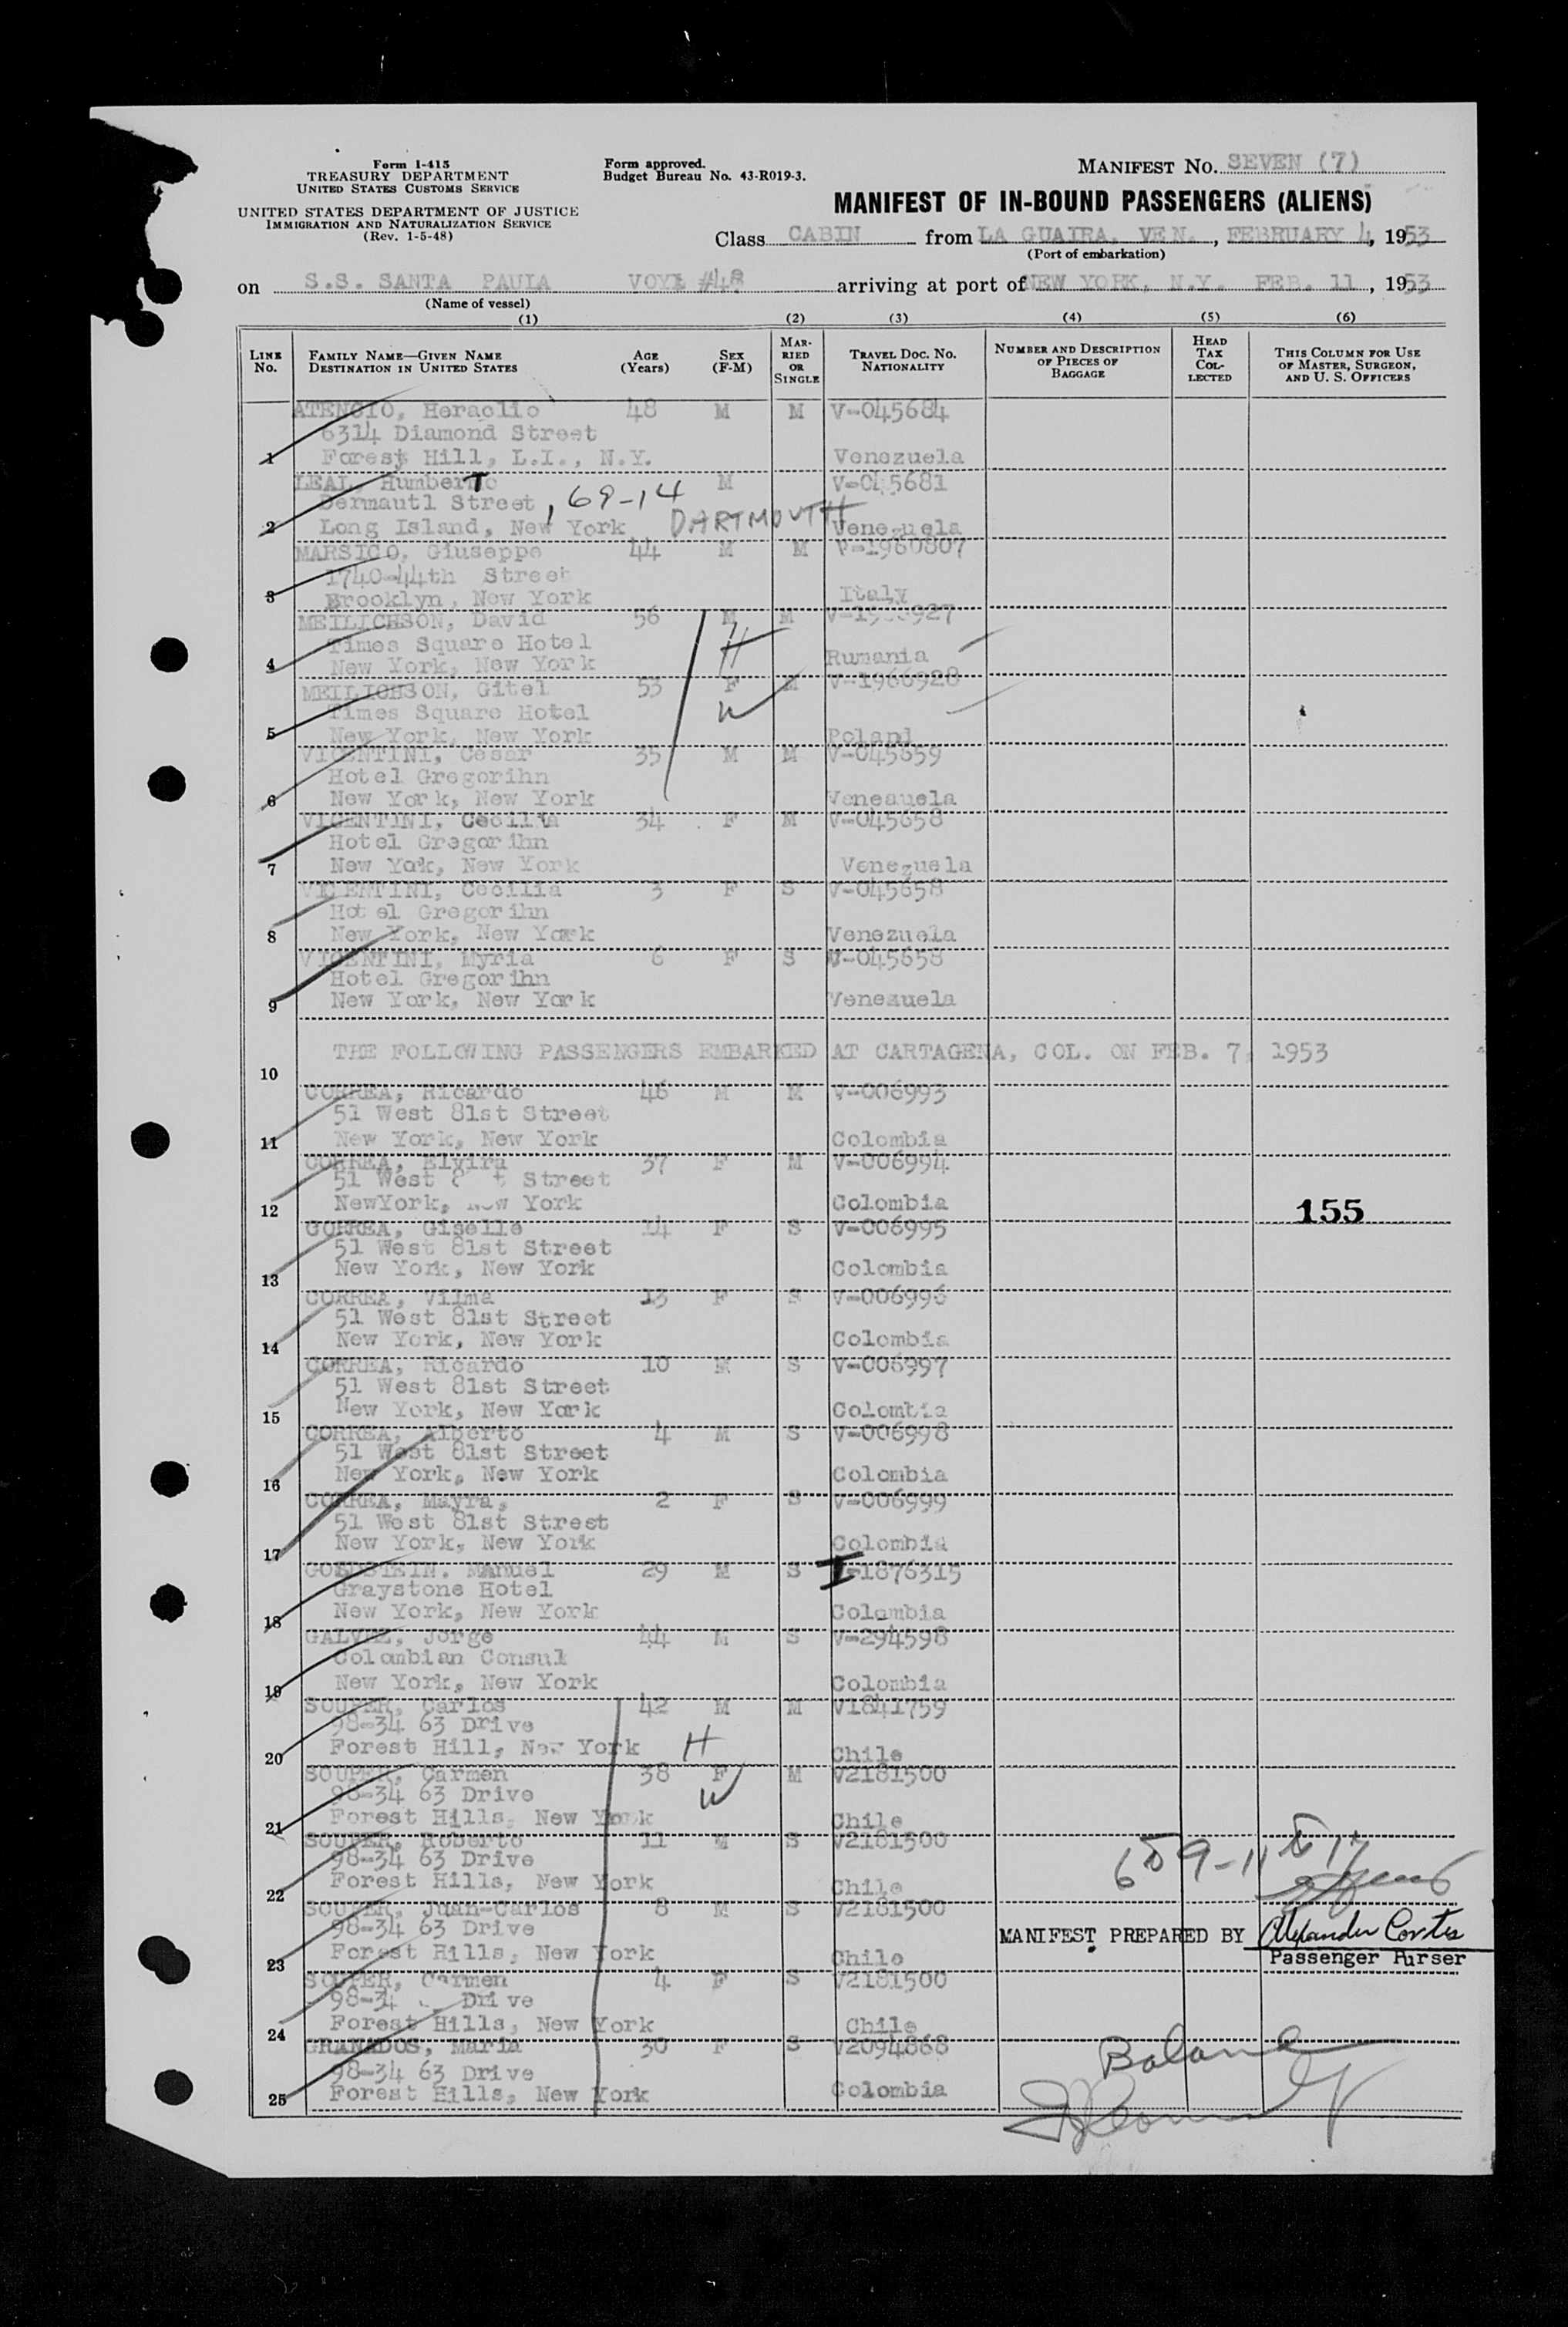 Form I-415
TREASURY DEPARTMENT
UNITED STATES CUSTOMS SERVICE
UNITED STATES DEPARTMENT OF JUSTICE
IMMIGRATION AND NATURALIZATION SERVICE
(Rev. 1-5-48)
Form approved.
Budget Bureau No. 43-R019-3.
MANIFEST No. SEVEN (7)
MANIFEST OF IN-BOUND PASSENGERS (ALIENS)
Class CABIN from LA GUAIRA, VEN., FEBRUARY 4, 1953
(Port of embarkation)
on S.S. SANTA PAULA VOYE #48 arriving at port of NEW YORK, N.Y. FEB. 11, 1953
(Name of vessel)
(1) (2) (3) (4) (5) (6)
LINE No. FAMILY NAME—GIVEN NAME DESTINATION IN UNITED STATES AGE (Years) SEX (F-M) MARRIED OR SINGLE TRAVEL DOC. NO. NATIONALITY NUMBER AND DESCRIPTION OF PIECES OF BAGGAGE HEAD TAX COLLECTED THIS COLUMN FOR USE OF MASTER, SURGEON, AND U. S. OFFICERS
ATENCIO, Heraclio 48 M M V-045684
6314 Diamond Street
1 Forest Hill, L.I., N.Y. Venezuela
LEAL, Humberto M V-045681
Dermautl Street, 69-14
2 Long Island, New York DARTMOUTH Venezuela
MARSICO, Giuseppe 44 M M V-1960807
1740-44th Street
3 Brooklyn, New York Italy
MEILICHSON, David 56 M M
Times Square Hotel H
4 New York, New York Rumania
MEILICHSON, Gitel 53 F M V-1966928
Times Square Hotel W
5 New York, New York Poland
VICENTINI, Cesar 35 M M V-045659
Hotel Gregorihn
6 New York, New York Venezuela
VICENTINI, Cecilia 34 F M V-045658
Hotel Gregorihn
7 New York, New York Venezuela
VICENTINI, Cecilia 3 F S V-045658
Hotel Gregorihn
8 New York, New York Venezuela
VICENTINI, Myria 6 F S V-045658
Hotel Gregorihn
9 New York, New York Venezuela
THE FOLLOWING PASSENGERS EMBARKED AT CARTAGENA, COL. ON FEB. 7, 1953
10
CORREA, Ricardo 46 M M V-006993
51 West 81st Street
11 New York, New York Colombia
CORREA, Elvira 37 F M V-006994
51 West Street
12 NewYork, New York Colombia 155
CORREA, Giselle 14 F S V-006995
51 West 81st Street
13 New York, New York Colombia
CORREA, Vilma 13 F S V-006996
51 West 81st Street
14 New York, New York Colombia
CORREA, Ricardo 10 M S V-006997
51 West 81st Street
15 New York, New York Colombia
CORREA, Alberto 4 M S V-006998
51 West 81st Street
16 New York, New York Colombia
CORREA, Mayra, 2 F S V-006999
51 West 81st Street
17 New York, New York Colombia
GOLDSTEIN. Manuel 29 M S I-1876315
Graystone Hotel
18 New York, New York Colombia
GALVEZ, Jorge 44 M S V-294598
Colombian Consul
19 New York, New York Colombia
SOUPER, Carlos 42 M M V1841759
98-34 63 Drive
20 Forest Hill, New York H Chile
SOUPER, Carmen 38 F M V2181500
98-34 63 Drive W
21 Forest Hills, New York Chile
SOUPER, Roberto 11 M S V2181500
98-34 63 Drive
22 Forest Hills, New York Chile
SOUPER, Juan-Carlos 8 M S V2181500
98-34 63 Drive MANIFEST PREPARED BY Alexander Cortes
23 Forest Hills, New York Chile Passenger Purser
SOUPER, Carmen 4 F S V2181500
98-34 Drive
24 Forest Hills, New York Chile
GRANADOS, Maria 30 F S V2094868
98-34 63 Drive
25 Forest Hills, New York Colombia